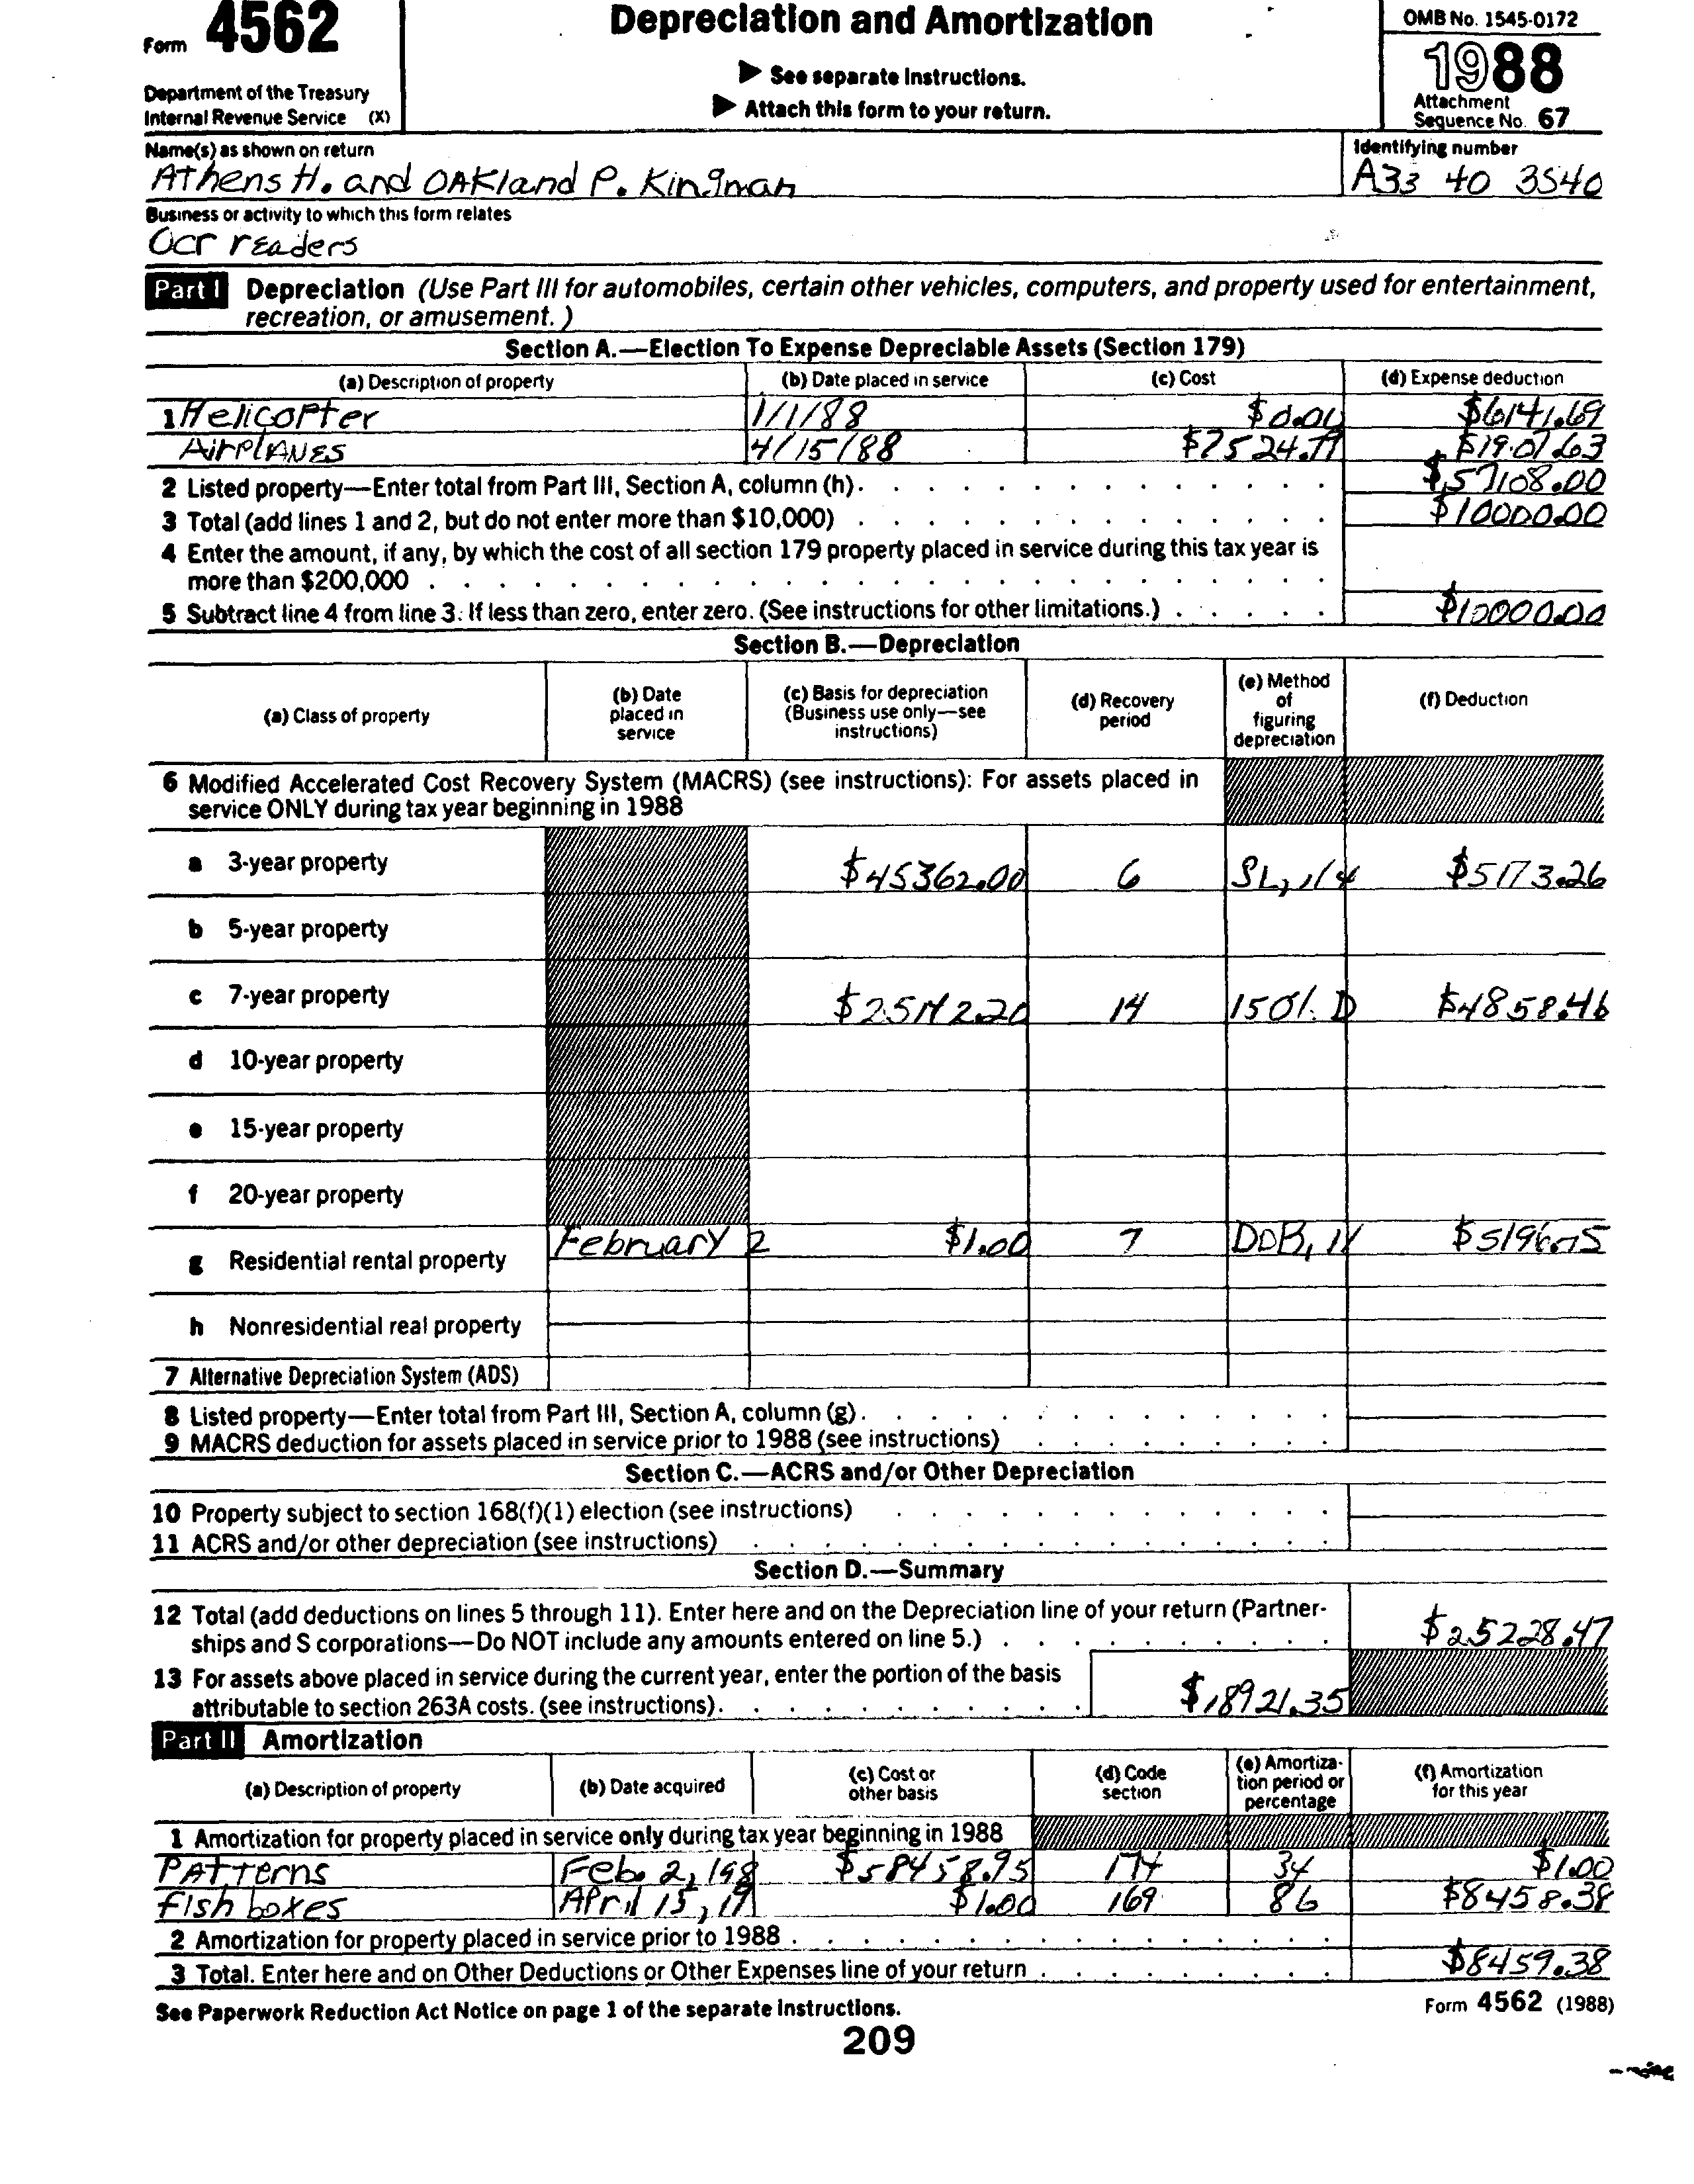 Form 4562
Depreciation and Amortization
OMB No. 1545-0172
1988
Department of the Treasury
Internal Revenue Service (X)
▶ See separate Instructions.
▶ Attach this form to your return.
Attachment
Sequence No. 67
Name(s) as shown on return
Identifying number
Athens H. and OAKland P. Kingman
A33 40 3540
Business or activity to which this form relates
Ocr readers
Part I Depreciation (Use Part III for automobiles, certain other vehicles, computers, and property used for entertainment,
recreation, or amusement.)
Section A.—Election To Expense Depreciable Assets (Section 179)
(a) Description of property (b) Date placed in service (c) Cost (d) Expense deduction
1 Helicopter 1/1/88 $0.00 $6141.69
AirplANES 4/15/88
2 Listed property—Enter total from Part III, Section A, column (h). $57108.00
3 Total (add lines 1 and 2, but do not enter more than $10,000) $10000.00
4 Enter the amount, if any, by which the cost of all section 179 property placed in service during this tax year is
more than $200,000
5 Subtract line 4 from line 3. If less than zero, enter zero. (See instructions for other limitations.) $10000.00
Section B.—Depreciation
(a) Class of property
(b) Date
placed in
service
(c) Basis for depreciation
(Business use only—see
instructions)
(d) Recovery
period
(e) Method
of
figuring
depreciation
(f) Deduction
6 Modified Accelerated Cost Recovery System (MACRS) (see instructions): For assets placed in
service ONLY during tax year beginning in 1988
a 3-year property $45362.00 6 SL, 1/4 $5173.26
b 5-year property
c 7-year property 14 150% D $4858.46
d 10-year property
e 15-year property
f 20-year property
February 2 $1.00 7 DDB, 1/ $5196.75
g Residential rental property
h Nonresidential real property
7 Alternative Depreciation System (ADS)
8 Listed property—Enter total from Part III, Section A, column (g).
9 MACRS deduction for assets placed in service prior to 1988 (see instructions)
Section C.—ACRS and/or Other Depreciation
10 Property subject to section 168(f)(1) election (see instructions)
11 ACRS and/or other depreciation (see instructions)
Section D.—Summary
12 Total (add deductions on lines 5 through 11). Enter here and on the Depreciation line of your return (Partner-
ships and S corporations—Do NOT include any amounts entered on line 5.) $25228.47
13 For assets above placed in service during the current year, enter the portion of the basis
attributable to section 263A costs. (see instructions). $18921.35
Part II Amortization
(a) Description of property
(b) Date acquired
(c) Cost or
other basis
(d) Code
section
(e) Amortiza-
tion period or
percentage
(f) Amortization
for this year
1 Amortization for property placed in service only during tax year beginning in 1988
PATTerns Feb. 2, 198 $58458.95 174 34 $1.00
fish boxes April 15, 19 $1.00 169 86 $8458.38
2 Amortization for property placed in service prior to 1988
3 Total. Enter here and on Other Deductions or Other Expenses line of your return $8459.38
See Paperwork Reduction Act Notice on page 1 of the separate Instructions.
Form 4562 (1988)
209